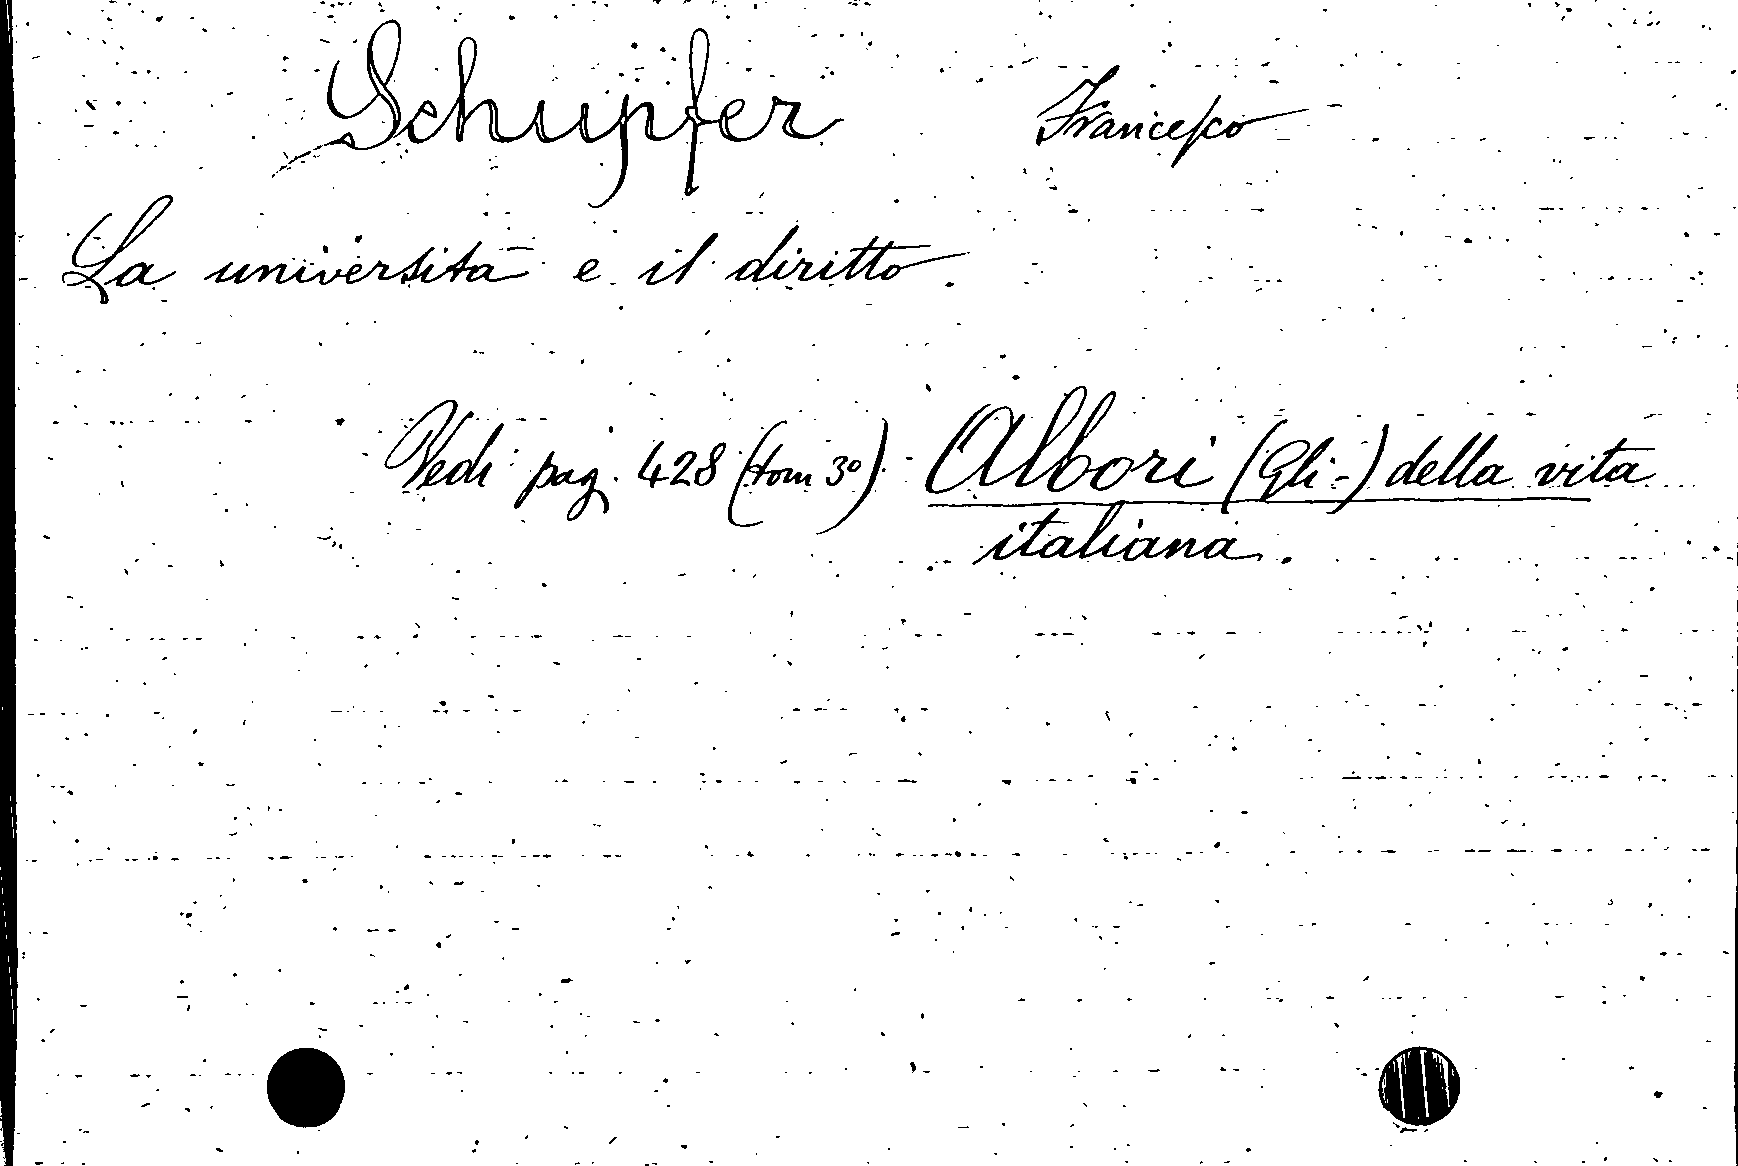 Schupfer Francesco
La università e il diritto.
Vedi pag. 428 (tom 3º) - Albori (Gli -) della vita
italiana.